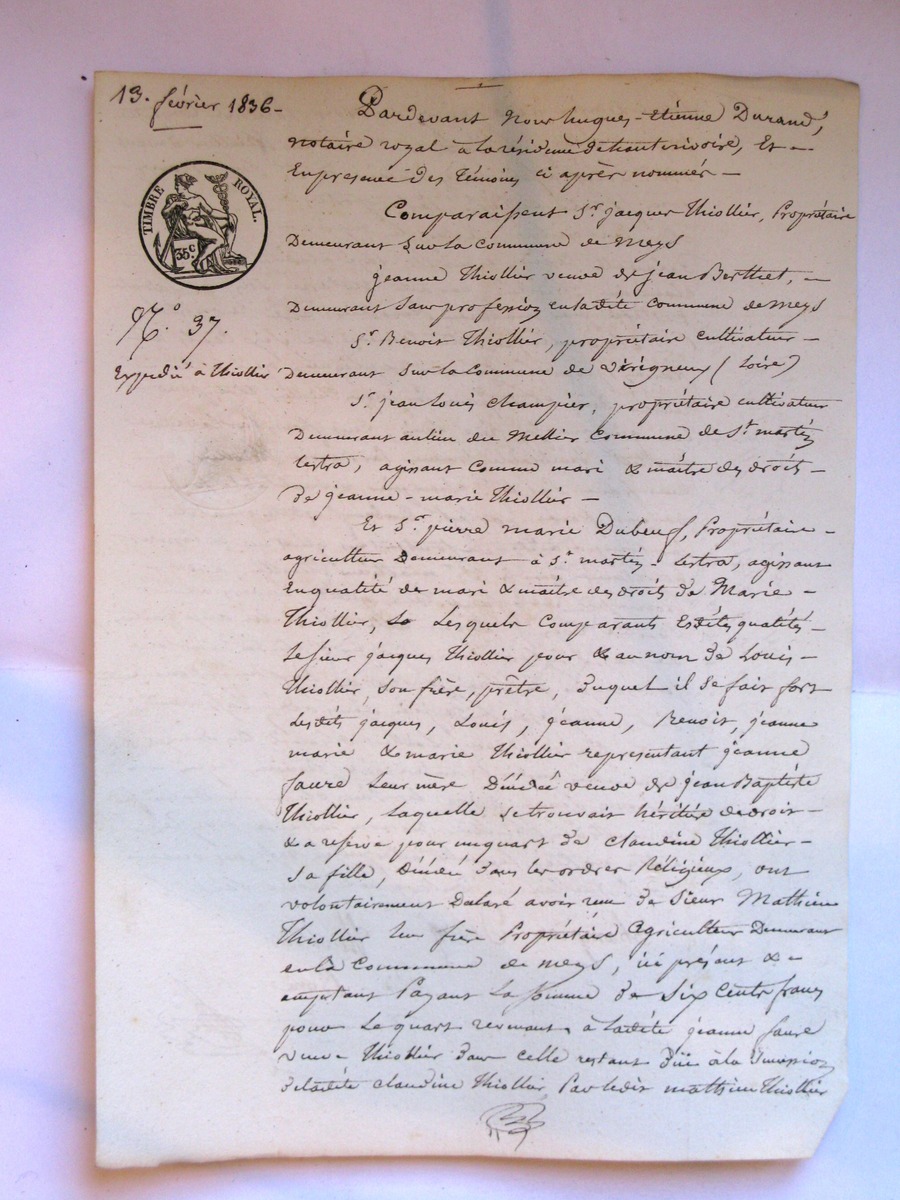 13. février 1836 -
TIMBRE ROYAL.
35 c.
N.º 37.
Expédié à Thiollier
Pardevant Nous hugues - étienne Durand,
notaire royal à la résidence de hauterivoire, Et -
En presence des témoins ci après nommés -
Comparaissent Sr. jacques Thiollier, Propriétaire
Demeurant Sur la Commune de Meys
jeanne Thiollier veuve de jean Berthet, -
Demeurant Sans profession en ladite Commune de Meys
Sr. Benoit Thiollier, propriétaire cultivateur -
Demeurant Sur la Commune de virigneux ( Loire )
Sr. jean Louis Champier, propriétaire cultivateur
Demeurant au lieu du Mellier Commune de St. martin
lestra, agissant Comme mari & maître des droits -
de jeanne - marie Thiollier -
Et Sr. pierre marie Dubeuf, Propriétaire -
agriculteur Demeurant à St. martin - Lestra, agissant
En qualité de mari & maître des droits de Marie -
Thiollier, Lesquels Comparants Esdites qualités -
Le sieur jacques Thiollier pour & au nom de Louis -
Thiollier, Son frère, prêtre, duquel il Se fait fort
Lesdits jacques, Louis, jeanne, Benoit, jeanne
marie & marie Thiollier representant jeanne
faure Leur mère Décédée veuve de jean Baptiste
Thiollier, Laquelle Se trouvait héritière de droit -
& a reserve pour un quart de Claudine Thiollier -
Sa fille, Décédé dans les ordres Réligieux, ont
volontairement Déclaré avoir reçu de Sieur Mathieu
Thiollier leur frère Propriétaire Agriculteur Demeurant
en la Commune de Meys, ici présent & -
acceptant Payant La Somme de Six Cents francs
pour Le quart revenant à Ladite jeanne faure
veuve Thiollier dans Celle restant Düe à la Succession
de ladite Claudine Thiollier Par ledit mathieu Thiollier